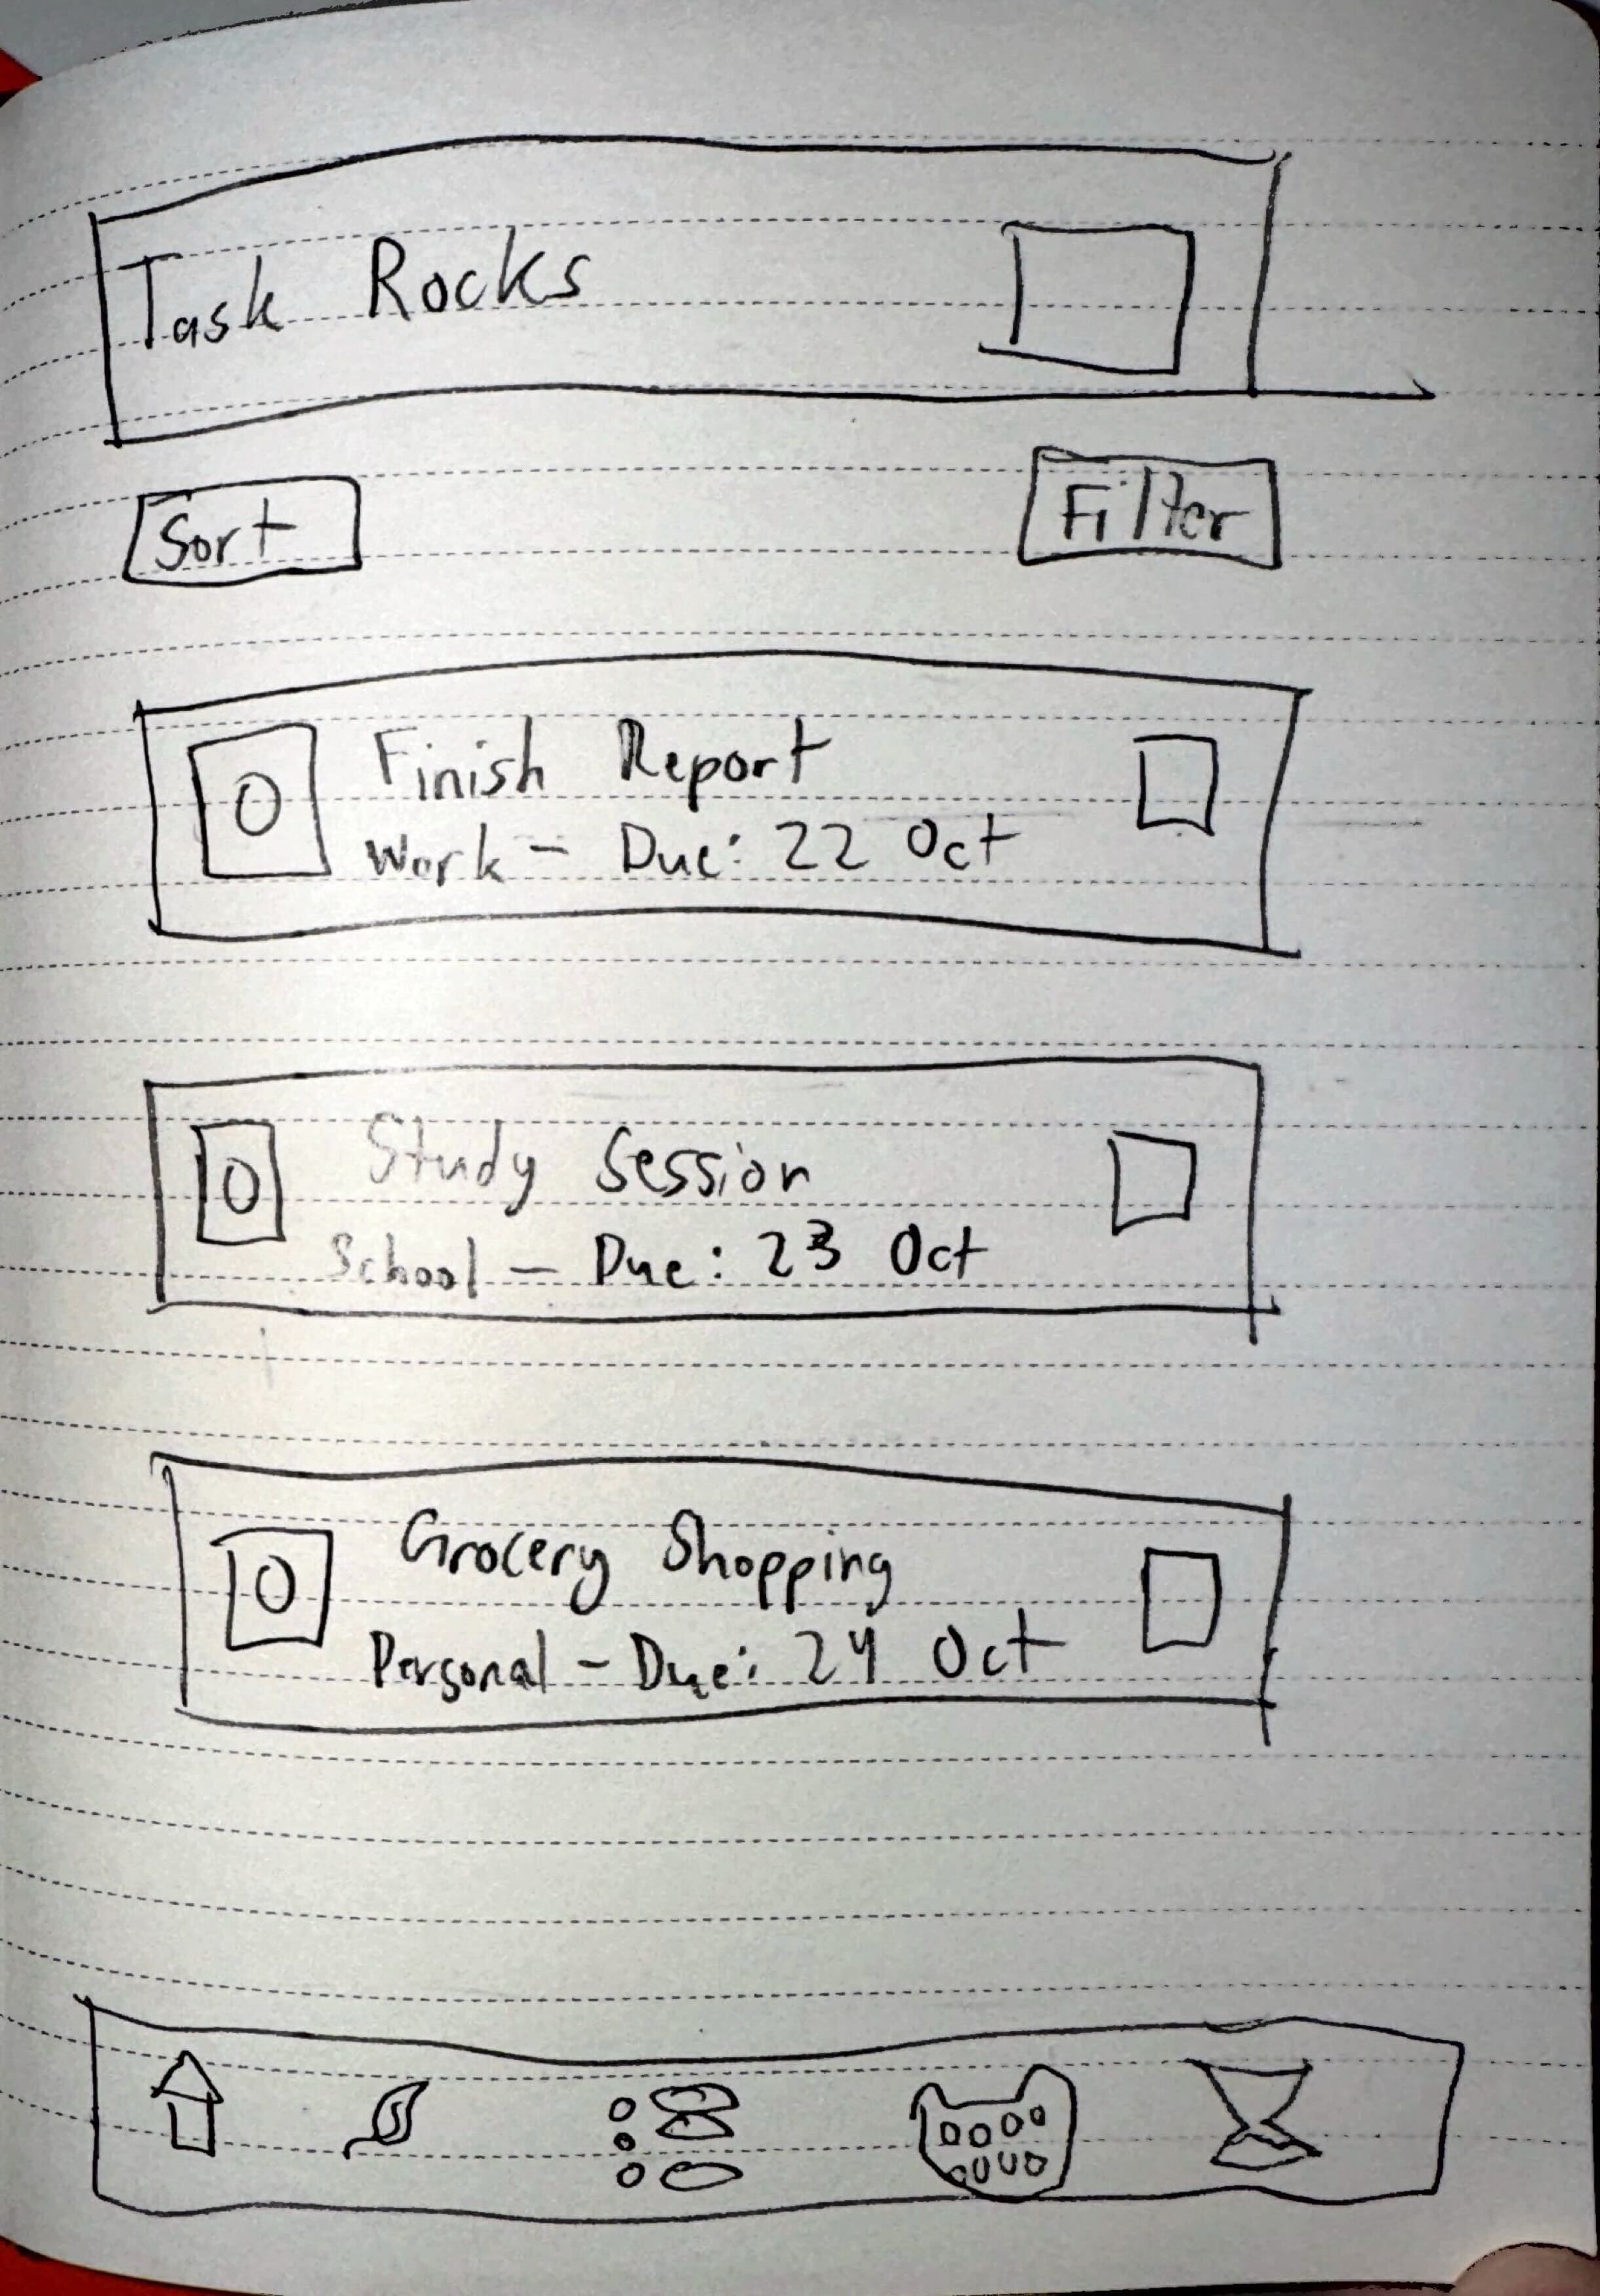 Task Rocks
Sort
Filter
Finish Report
Work - Due: 22 Oct
Study Session
School - Due: 23 Oct
Grocery Shopping
Personal - Due: 24 Oct